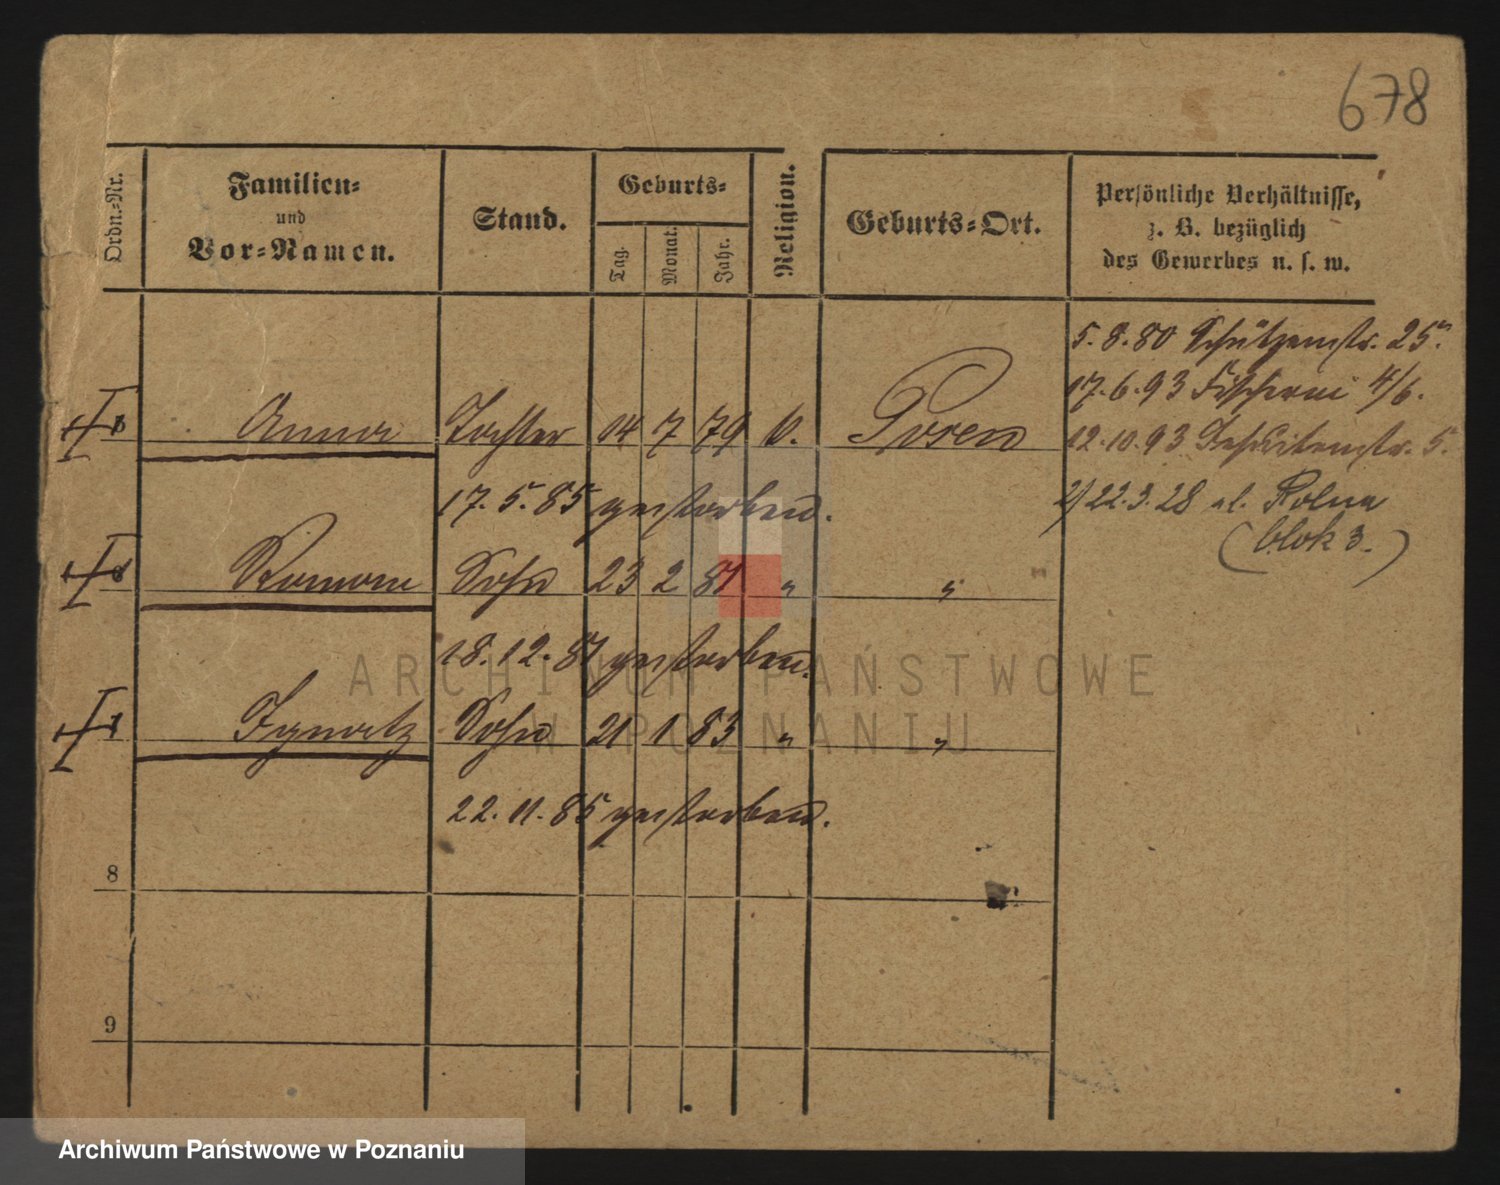 678
Ordn.-Nr.
Familien-
und
Vor-Namen.
Stand.
Geburts-
Tag.
Monat.
Jahr.
Religion.
Geburts-Ort.
Persönliche Verhältnisse,
z. B. bezüglich
des Gewerbes u. s. w.
5.8.80 Schützenstr. 25.
17.6.93 Fischerei 4/6.
Anna Tochter 14 7 79 Posen
12.10.93 Jesuitenstr. 5.
17.5.85 gestorben.
2) 22.3.28 ul. Rolna
(blok 3.)
Roman Sohn 23 2 81 " "
18.12.81 gestorben.
Ignatz Sohn 21 1 83 " "
22.11.85 gestorben.
8
9
ARCHIWUM PAŃSTWOWE
W POZNANIU
Archiwum Państwowe w Poznaniu